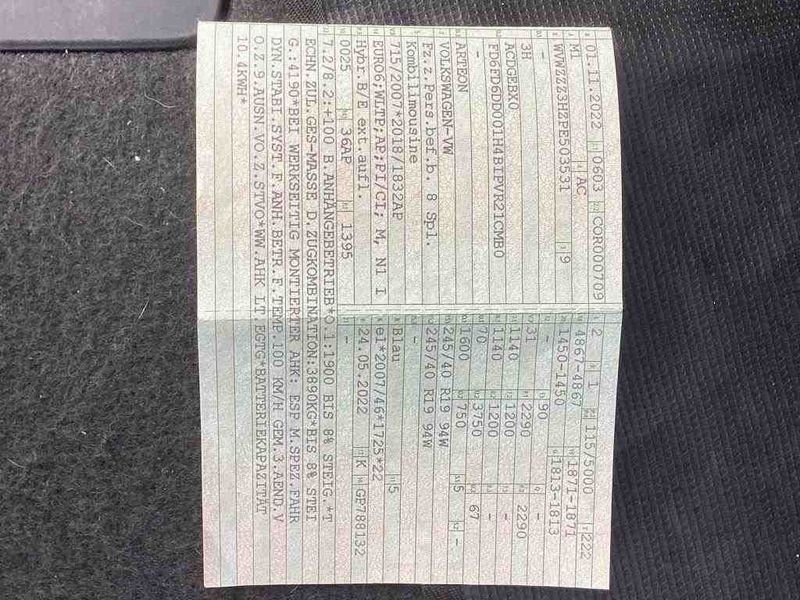 01.11.2022 0603 COR000709
M1 AC
WVWZZZ3HZPE503531 9
-
3H
ACDGEBX0
FD6FD6DD001H4BIPVR21CMB0
-
ARTEON
VOLKSWAGEN-VW
Fz.z.Pers.bef.b. 8 Spl.
Kombilimousine
715/2007*2018/1832AP
EURO6;WLTP;AP;PI/CI; M, N1 I
Hybr.B/E ext.aufl.
0025 36AP 1395
2 1 115/5000 222
4867-4867 1871-1871
1450-1450 1813-1813
- 90 -
31 2290 2290
1140 1200 -
1140 1200 -
70 3750 67
1600 750 5 -
245/40 R19 94W
245/40 R19 94W
-
Blau 5
e1*2007/46*1725*22
24.05.2022 K GP788132
-
7.2/8.2:+100 B.ANHÄNGEBETRIEB*O.1:1900 BIS 8% STEIG.*T
ECHN.ZUL.GES-MASSE D.ZUGKOMBINATION:3890KG*BIS 8% STEI
G.:4190*BEI WERKSEITIG MONTIERTER AHK: ESP M.SPEZ.FAHR
DYN.STABI.SYST.F.ANH.BETR.F.TEMP.100 KM/H GEM.3.AEND.V
O.Z.9.AUSN.VO.Z.STVO*WW.AHK LT.EGTG*BATTERIEKAPAZITÄT
10.4KWH*